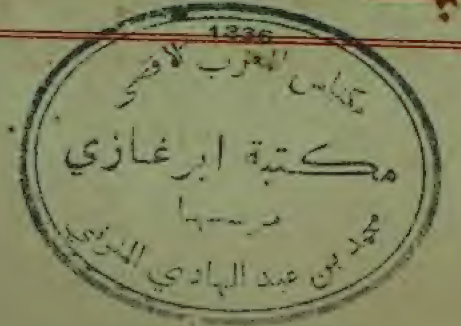 1336
مكناس المغرب الاقصى
مكتبة ابن غازي
محمد بن عبد الهادي المنوني